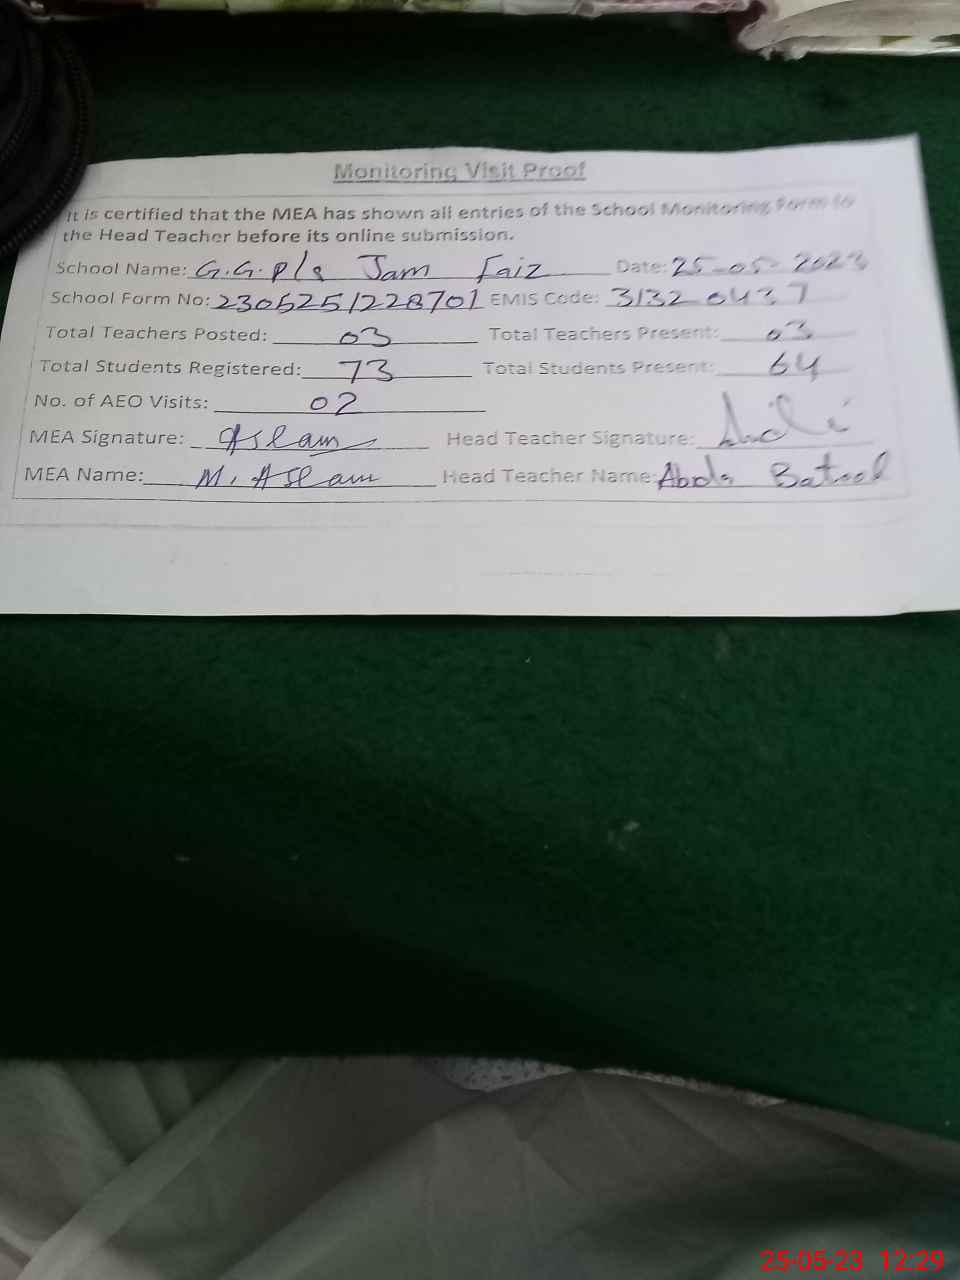 Monitoring Visit Proof
It is certified that the MEA has shown all entries of the School Monitoring Form to
the Head Teacher before its online submission.
School Name: G.G.P/S Jam Faiz Date: 25-05-2023
School Form No: 2305251228701 EMIS Code: 31320437
Total Teachers Posted: 03 Total Teachers Present: 03
Total Students Registered: 73 Total Students Present: 64
No. of AEO Visits: 02
MEA Signature: Aslam Head Teacher Signature:
MEA Name: M. Aslam Head Teacher Name: Abida Batool
25-05-23 12:29